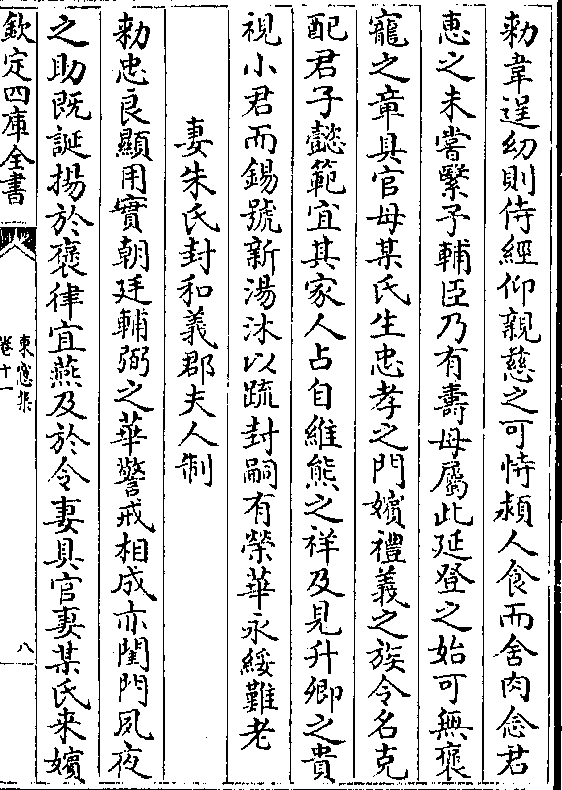 勅韋逞幼則侍經仰親慈之可恃潁人食而舍肉念君
惠之未嘗繄予輔臣乃有壽母屬此延登之始可無褒
寵之章具官母某氏生忠孝之門嬪禮義之族令名克
配君子懿範宜其家人占自維熊之祥及見升卿之貴
視小君而錫號新湯沐以疏封嗣有榮華永綏難老
妻朱氏封和義郡夫人制
勅忠良顯用實朝廷輔弼之華警戒相成亦閨門夙夜
之助既誕揚於褒律宜燕及於令妻具官妻某氏来嬪
欽定四庫全書
東窻集
卷十一
八